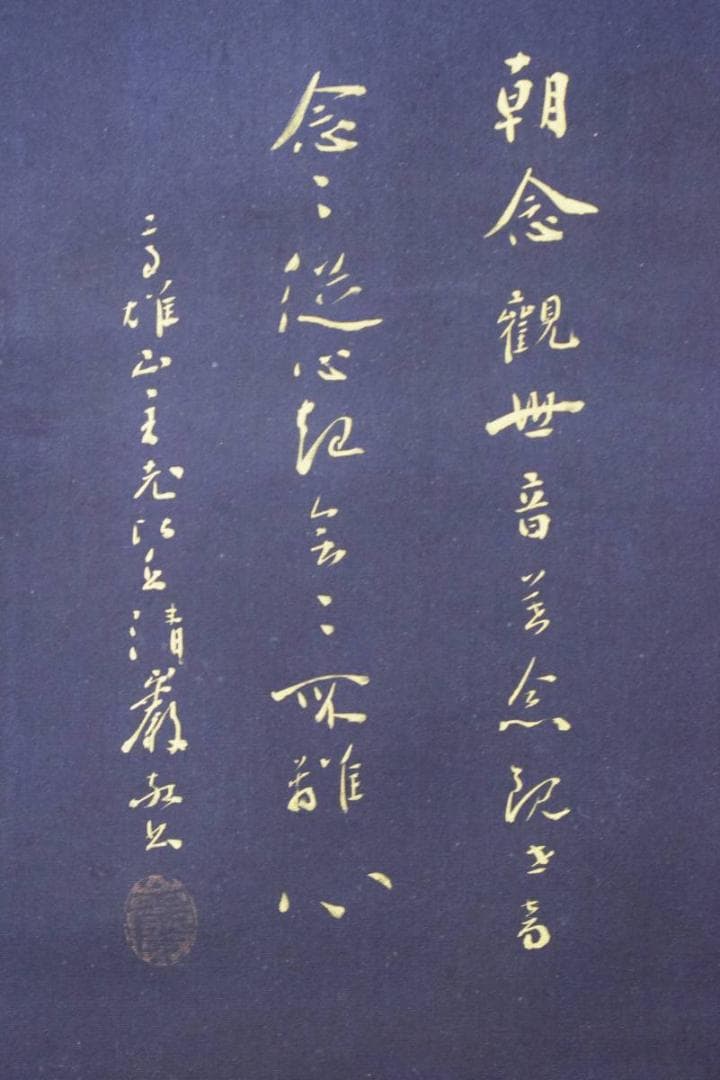 朝念觀世音暮念観世音
念〻從心起念〻不離心
高雄山主老比丘清嚴敬書